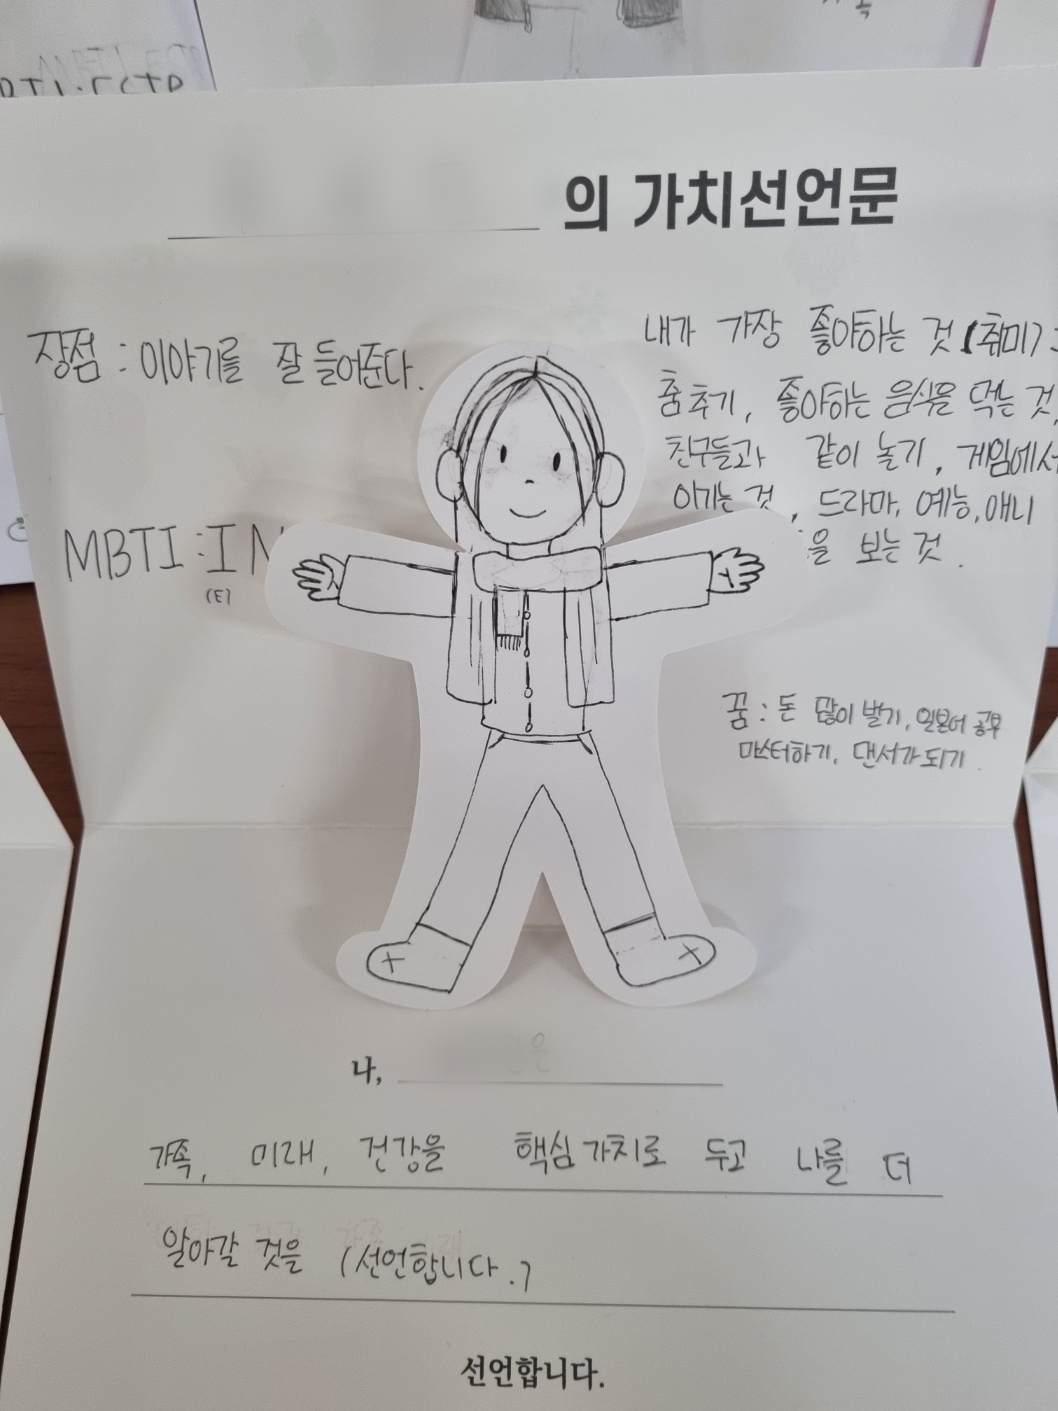 의 가치선언문
장점 : 이야기를 잘 들어준다.
MBTI : I N
(E)
내가 가장 좋아하는 것 (취미) :
춤추기, 좋아하는 음식을 먹는 것,
친구들과 같이 놀기, 게임에서
이기는 것, 드라마, 예능, 애니
을 보는 것.
꿈 : 돈 많이 벌기, 일본어 공부
마스터하기, 댄서가 되기.
나,
가족, 미래, 건강을 핵심 가치로 두고 나를 더
알아갈 것을 (선언합니다.)
선언합니다.